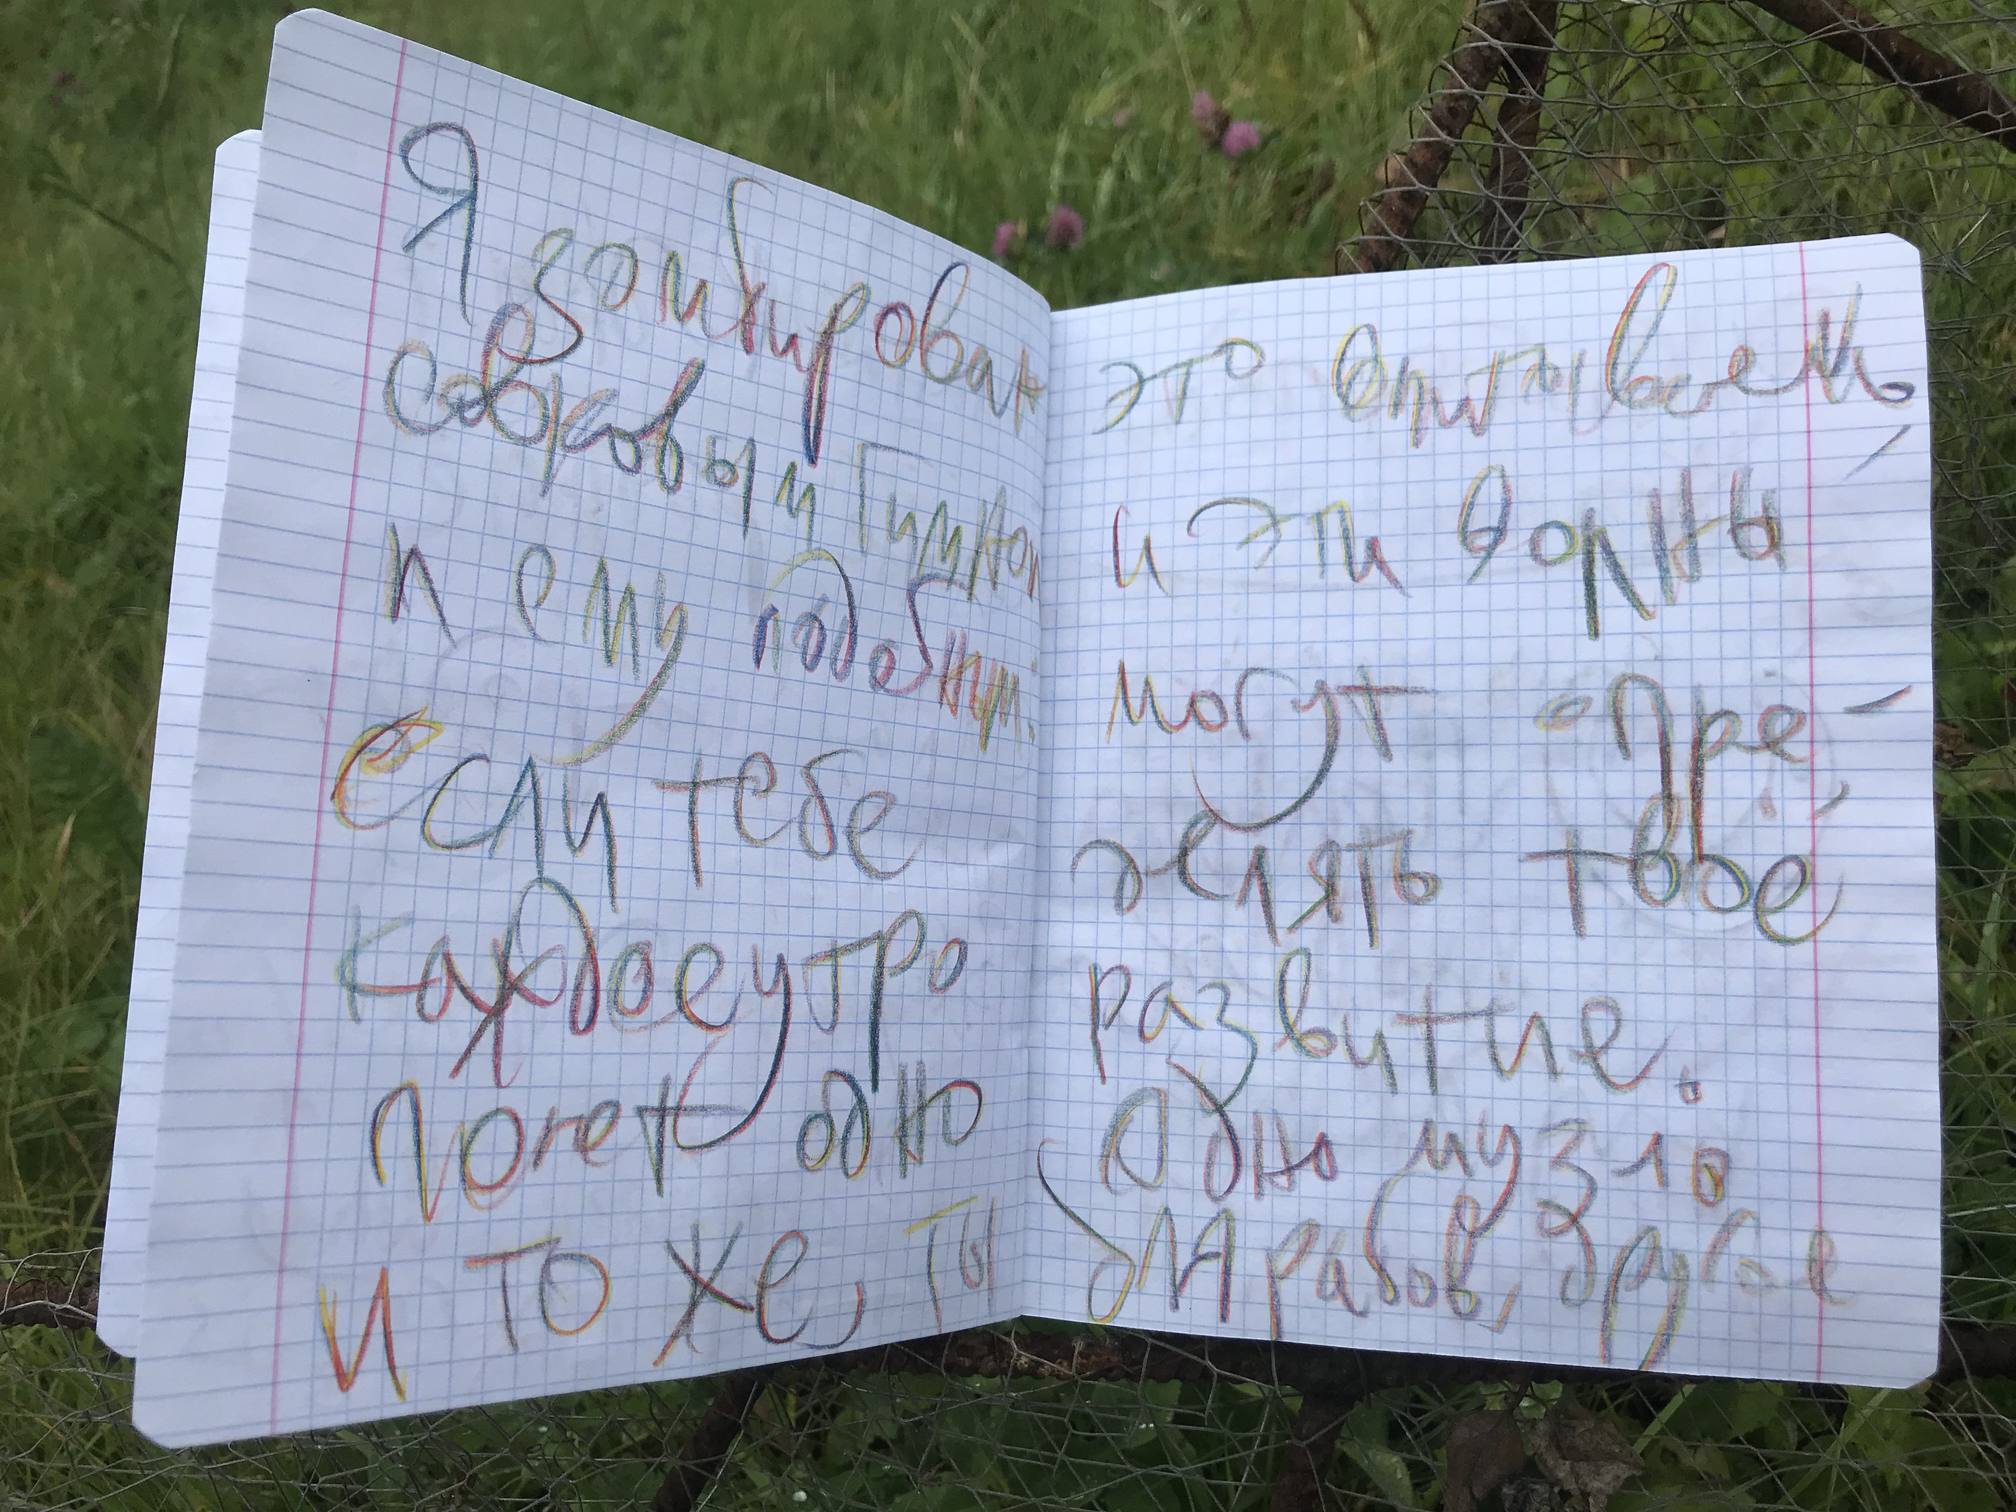 Я зомбирован
совковым гимном
и ему подобным.
если тебе
каждое утро
поют одно
и то же, ты
это впитываешь,
и эти волны
могут опре-
делять твоё
развитие.
Одно музло
для рабов, другое